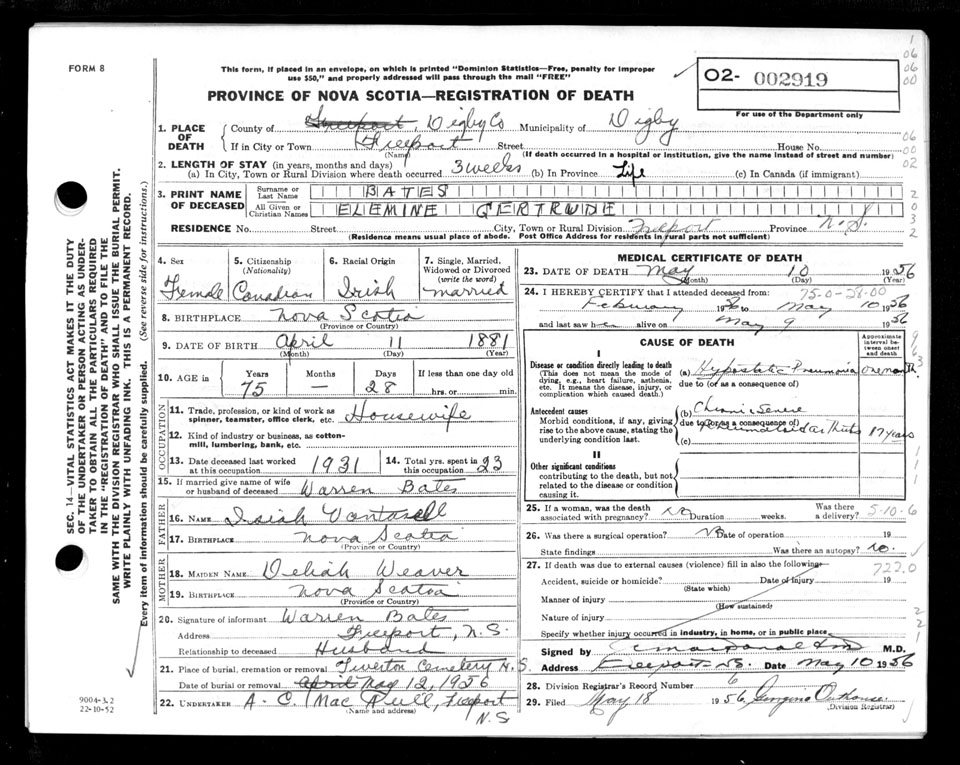 FORM 8
This form, if placed in an envelope, on which is printed "Dominion Statistics—Free, penalty for improper
use $50," and properly addressed will pass through the mail "FREE"
O2- 002919
For use of the Department only
PROVINCE OF NOVA SCOTIA—REGISTRATION OF DEATH
1. PLACE OF DEATH
County of Freeport, Digby Co Municipality of Digby
If in City or Town Freeport Street House No.
(Name) (If death occurred in a hospital or institution, give the name instead of street and number)
2. LENGTH OF STAY (in years, months and days)
(a) In City, Town or Rural Division where death occurred 3 weeks (b) In Province Life (c) In Canada (if immigrant)
3. PRINT NAME OF DECEASED
Surname or Last Name BATES
All Given or Christian Names ELEMINE GERTRUDE
RESIDENCE No. Street City, Town or Rural Division Freeport Province N.S.
(Residence means usual place of abode. Post Office Address for residents in rural parts not sufficient)
4. Sex
Female
5. Citizenship
(Nationality)
Canadian
6. Racial Origin
Irish
7. Single, Married, Widowed or Divorced
(write the word)
married
8. BIRTHPLACE Nova Scotia
(Province or Country)
9. DATE OF BIRTH April 11 1881
(Month) (Day) (Year)
10. AGE in Years Months Days If less than one day old
75 — 28 hrs. or min.
OCCUPATION
11. Trade, profession, or kind of work as
spinner, teamster, office clerk, etc. Housewife
12. Kind of industry or business, as cotton-
mill, lumbering, bank, etc.
13. Date deceased last worked
at this occupation 1931
14. Total yrs. spent in
this occupation 23
15. If married give name of wife
or husband of deceased Warren Bates
FATHER
16. NAME Isiah
17. BIRTHPLACE Nova Scotia
(Province or Country)
MOTHER
18. MAIDEN NAME Deliah Weaver
19. BIRTHPLACE Nova Scotia
(Province or Country)
20. Signature of informant Warren Bates
Address Freeport, N.S.
Relationship to deceased Husband
21. Place of burial, cremation or removal Tiverton Cemetery N.S.
Date of burial or removal April May 12, 1956
22. UNDERTAKER A. C. Freeport
(Name and address) N.S
MEDICAL CERTIFICATE OF DEATH
23. DATE OF DEATH May 10 1956
(Month) (Day)
24. I HEREBY CERTIFY that I attended deceased from: 75-0-28-00
February 1956 to May 10 1956
and last saw her alive on May 9 1956
CAUSE OF DEATH
Approximate interval between onset and death
I
Disease or condition directly leading to death
(This does not mean the mode of
dying, e.g., heart failure, asthenia,
etc. It means the disease, injury, or
complication which caused death.)
(a) Hypostatic Pneumonia one month.
due to (or as a consequence of)
Antecedent causes
Morbid conditions, if any, giving
rise to the above cause, stating the
underlying condition last.
(b) Chronic Severe
due to (or as a consequence of)
Rheumatoid arthritis 17 years
(c)
II
Other significant conditions
contributing to the death, but not
related to the disease or condition
causing it.
25. If a woman, was the death
associated with pregnancy? No Duration weeks. Was there
a delivery? 5-10-6
26. Was there a surgical operation? No Date of operation 19
State findings Was there an autopsy? no.
27. If death was due to external causes (violence) fill in also the following 722.0
Accident, suicide or homicide? Date of Injury 19
(State which)
Manner of injury
(How sustained)
Nature of injury
Specify whether injury occurred in industry, in home, or in public place
Signed by M.D.
Address Freeport N.S. Date May 10 1956
28. Division Registrar's Record Number 6
29. Filed May 18 1956 Outhouse
(Division Registrar)
SEC. 14—VITAL STATISTICS ACT MAKES IT THE DUTY
OF THE UNDERTAKER OR PERSON ACTING AS UNDER-
TAKER TO OBTAIN ALL THE PARTICULARS REQUIRED
IN THE "REGISTRATION OF DEATH" AND TO FILE THE
SAME WITH THE DIVISION REGISTRAR WHO SHALL ISSUE THE BURIAL PERMIT.
WRITE PLAINLY WITH UNFADING INK. THIS IS A PERMANENT RECORD.
Every item of information should be carefully supplied. (See reverse side for instructions.)
9004-3.2
22-10-52